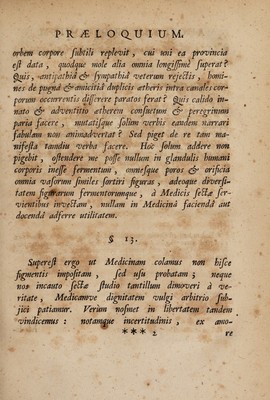 PRÆLOQUIUM.
orbem corpore subtili replevit, cui uni ea provincia
est data, quodque mole alia omnia longissime superat?
Quis, antipathiâ & sympathiâ veterum rejectis, homi-
nes de pugnâ & amicitiâ duplicis ætheris intra canales cor-
porum occurrentis disserere paratos ferat? Quis calido in-
nato & adventitio ætherem consuetum & peregrinum
paria facere, mutatisque solùm verbis eandem narrari
fabulam non animadvertat? Sed piget de re tam ma-
nifesta tamdiu verba facere. Hoc solum addere non
pigebit, ostendere me posse nullum in glandulis humani
corporis inesse fermentum, omnesque poros & orificia
omnia vasorum similes sortiri figuras, adeoque diversi-
tatem figurarum fermentorumque, à Medicis sectæ ser-
vientibus invectam, nullam in Medicinâ faciendâ aut
docendâ adferre utilitatem.
§ 13.
Superest ergo ut Medicinam colamus non hisce
figmentis impositam, sed usu probatam; neque
nos incauto sectæ studio tantillum dimoveri à ve-
ritate, Medicamve dignitatem vulgi arbitrio sub-
jici patiamur. Verum nosmet in libertatem tandem
vindicemus: notamque incertitudinis, ex amo-
*** 2 re